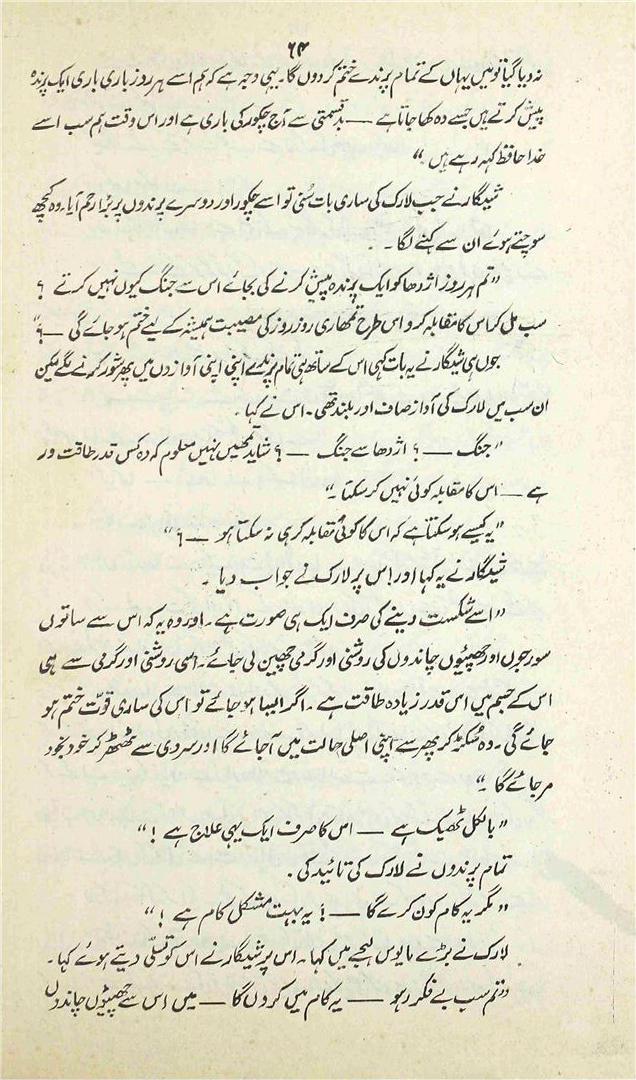 ۶۴
نہ دیا گیا تو میں یہاں کے تمام پرندے ختم کر دوں گا۔ یہی وجہ ہے کہ ہم اسے ہر روز باری باری ایک پرندہ
پیش کرتے ہیں جسے وہ کھا جاتا ہے — بدقسمتی سے آج چکور کی باری ہے اور اس وقت ہم سب اسے
خدا حافظ کہہ رہے ہیں۔"
شیلگار نے جب لارک کی ساری بات سُنی تو اسے چکور اور دوسرے پرندوں پر بڑا رحم آیا۔ وہ کچھ
سوچتے ہوئے ان سے کہنے لگا۔
"تم ہر روز اژدھا کو ایک پرندہ پیش کرنے کی بجائے اس سے جنگ کیوں نہیں کرتے ؟
سب مل کر اس کا مقابلہ کرو اس طرح تمھاری روز روز کی مصیبت ہمیشہ کے لیے ختم ہو جائے گی —؟"
جوں ہی شیلگار نے یہ بات کہی اس کے ساتھ ہی تمام پرندے اپنی اپنی آوازوں میں پھر شور کرنے لگے لیکن
ان سب میں لارک کی آواز صاف اور بلند تھی۔ اس نے کہا۔
"جنگ — ؟ اژدھا سے جنگ — ؟ شاید تمھیں نہیں معلوم کہ وہ کس قدر طاقت ور
ہے — اس کا مقابلہ کوئی نہیں کر سکتا۔"
"یہ کیسے ہو سکتا ہے کہ اس کا کوئی مقابلہ کر ہی نہ سکتا ہو — ؟"
شیلگار نے یہ کہا اور اس پر لارک نے جواب دیا۔
"اسے شکست دینے کی صرف ایک ہی صورت ہے۔ اور وہ یہ کہ اس سے ساتوں
سورجوں اور چھیئوں چاندوں کی روشنی اور گرمی چھین لی جائے۔ اسی روشنی اور گرمی سے ہی
اس کے جسم میں اس قدر زیادہ طاقت ہے۔ اگر ایسا ہو جائے تو اس کی ساری قوّت ختم ہو
جائے گی۔ وہ سُکڑ کر پھر سے اپنی اصلی حالت میں آ جائے گا اور سردی سے ٹھٹھر کر خود بخود
مر جائے گا۔"
"بالکل ٹھیک ہے — اس کا صرف ایک یہی علاج ہے !"
تمام پرندوں نے لارک کی تائید کی۔
"مگر یہ کام کون کرے گا — ! یہ بہت مشکل کام ہے !"
لارک نے بڑے مایوس لہجے میں کہا۔ اس پر شیلگار نے اس کو تسلّی دیتے ہوئے کہا۔
"تم سب بے فکر رہو — یہ کام میں کر دوں گا — میں اس سے چھیئوں چاندوں